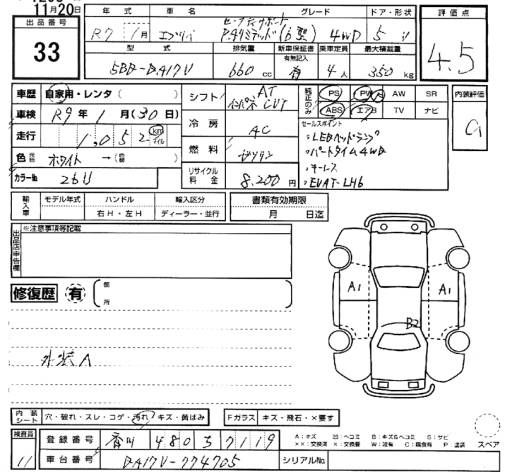 11月20日
出品番号
33
年式 車名 グレード ドア・形状
R7 1月 エブリイ P.Aリミテッド 4WD 5
型式 排気量 新車保証書 有無記入 乗車定員 最大積載量
5BD-DA17V 660 cc 有 4人 350 kg
評価点
4.5
車歴 自家用・レンタ ( )
車検 R9年 1月 (30日)
走行 1,052 km マイル
色 元色 ホワイト → (色替 )
カラーNo 26U
シフト AT インパネ CVT
冷房 AC
燃料 ガソリン
リサイクル料金 8,200円
純正品のみ
PS PW AW SR
ABS エアB TV ナビ
セールスポイント
・LEDヘッドランプ
・パートタイム4WD
・キーレス
内装評価
輸入車 モデル年式 ハンドル 輸入区分
右H・左H ディーラー・並行
書類有効期限
月 日迄
出品店申告欄
※注意事項等記載
修復歴 有 箇所
外装A
A1 A1
B2
内装シート 穴・破れ・スレ・コゲ・汚れ・キズ・黄ばみ
Fガラス キズ・飛石・×要す
検査員 11
登録番号 香川 480
車台番号 DA17V-774705
シリアルNo.
A：キズ B：キズ&ヘコミ S：サビ
スペア